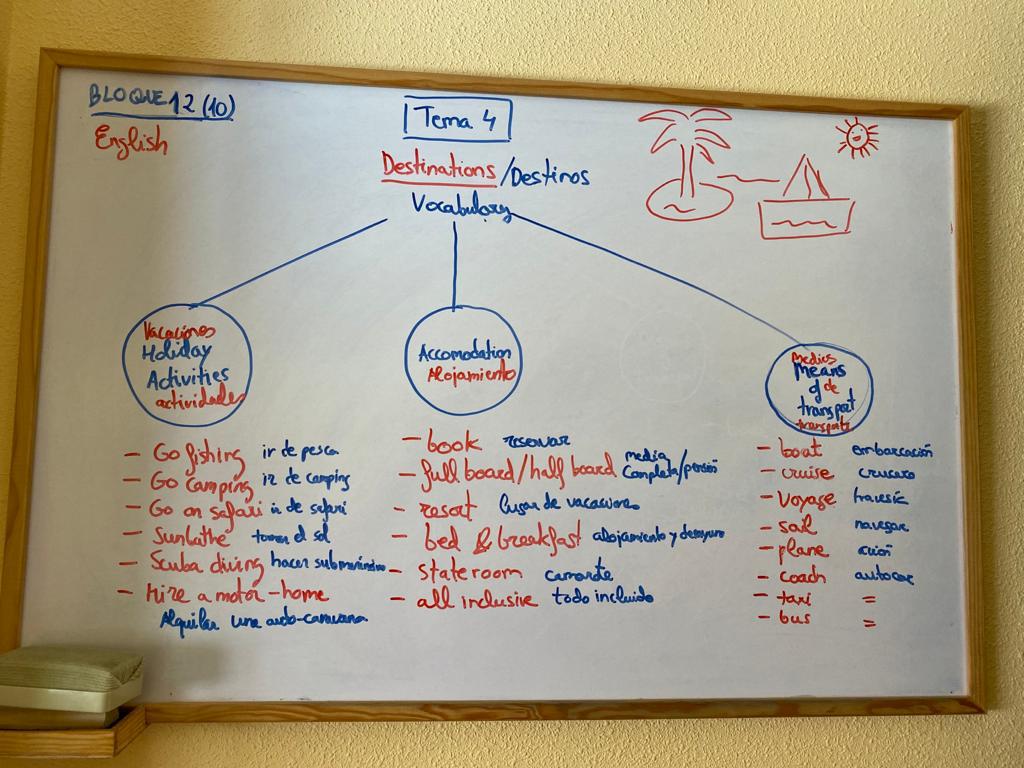 BLOQUE 12 (10)
English
Tema 4
Destinations / Destinos
Vocabulary
Vacaciones
Holiday
Activities
actividades
- Go fishing ir de pesca
- Go camping ir de camping
- Go on safari ir de safari
- Sunbathe tomar el sol
- Scuba diving hacer submarinismo
- Hire a motor-home
Alquilar una auto-caravana
Accomodation
Alojamiento
- book reservar
- full board/half board media completa/pensión
- resort lugar de vacaciones
- bed & breakfast alojamiento y desayuno
- stateroom camarote
- all inclusive todo incluido
Medios
Means
of de
transport
transporte
- boat embarcación
- cruise crucero
- voyage travesía
- sail navegar
- plane avión
- coach autocar
- taxi =
- bus =